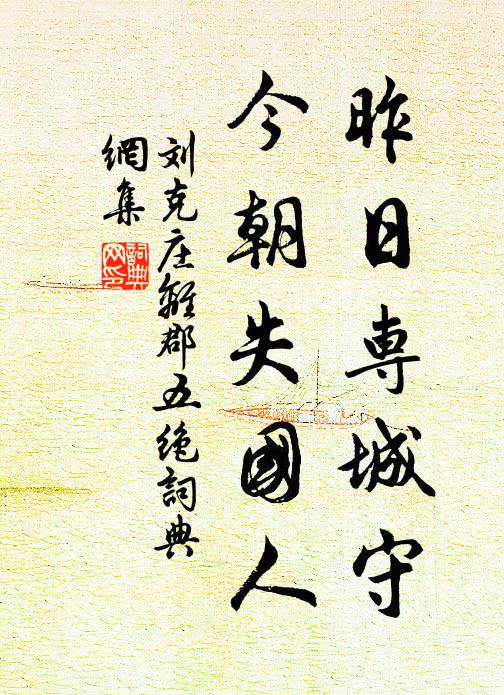 昨日専城守
今朝失國人
刘克庄離郡五绝詞典
網集
詞典網印